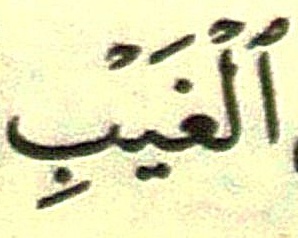 ٱلْغَيْبِ